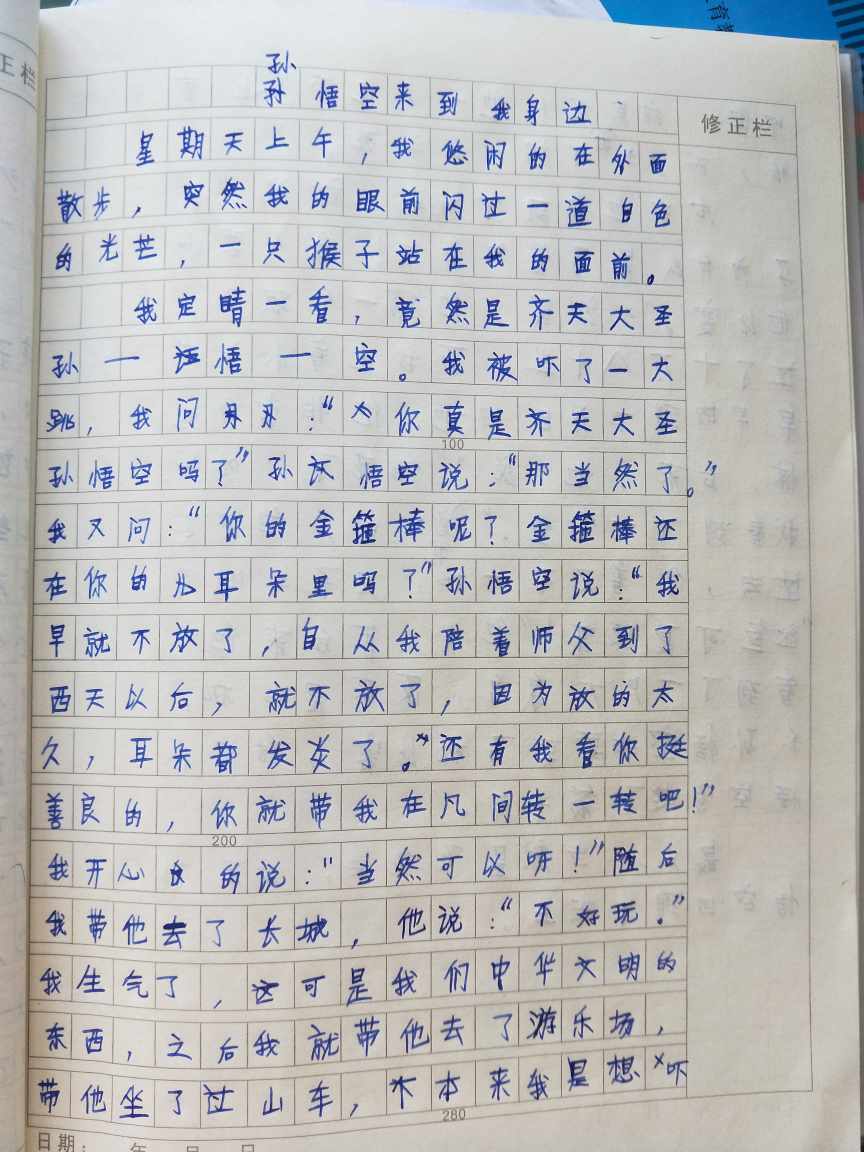 正栏
孙
孙悟空来到我身边
修正栏
星期天上午，我悠闲的在外面
散步，突然我的眼前闪过一道白色
的光芒，一只猴子站在我的面前。
我定睛一看，竟然是齐天大圣
孙一悟一空。我被吓了一大
跳，我问：“你真是齐天大圣
100
孙悟空吗？”孙悟空说：“那当然了。”
我又问：“你的金箍棒呢？金箍棒还
在你的耳朵里吗？”孙悟空说：“我
早就不放了，自从我陪着师父到了
西天以后，就不放了，因为放的太
久，耳朵都发炎了。还有我看你挺
善良的，你就带我在凡间转一转吧！”
200
我开心的说：“当然可以呀！”随后
我带他去了长城，他说：“不好玩。”
我生气了，这可是我们中华文明的
东西，之后我就带他去了游乐场，
带他坐了过山车，本来我是想吓
280
日期： 年 月 日